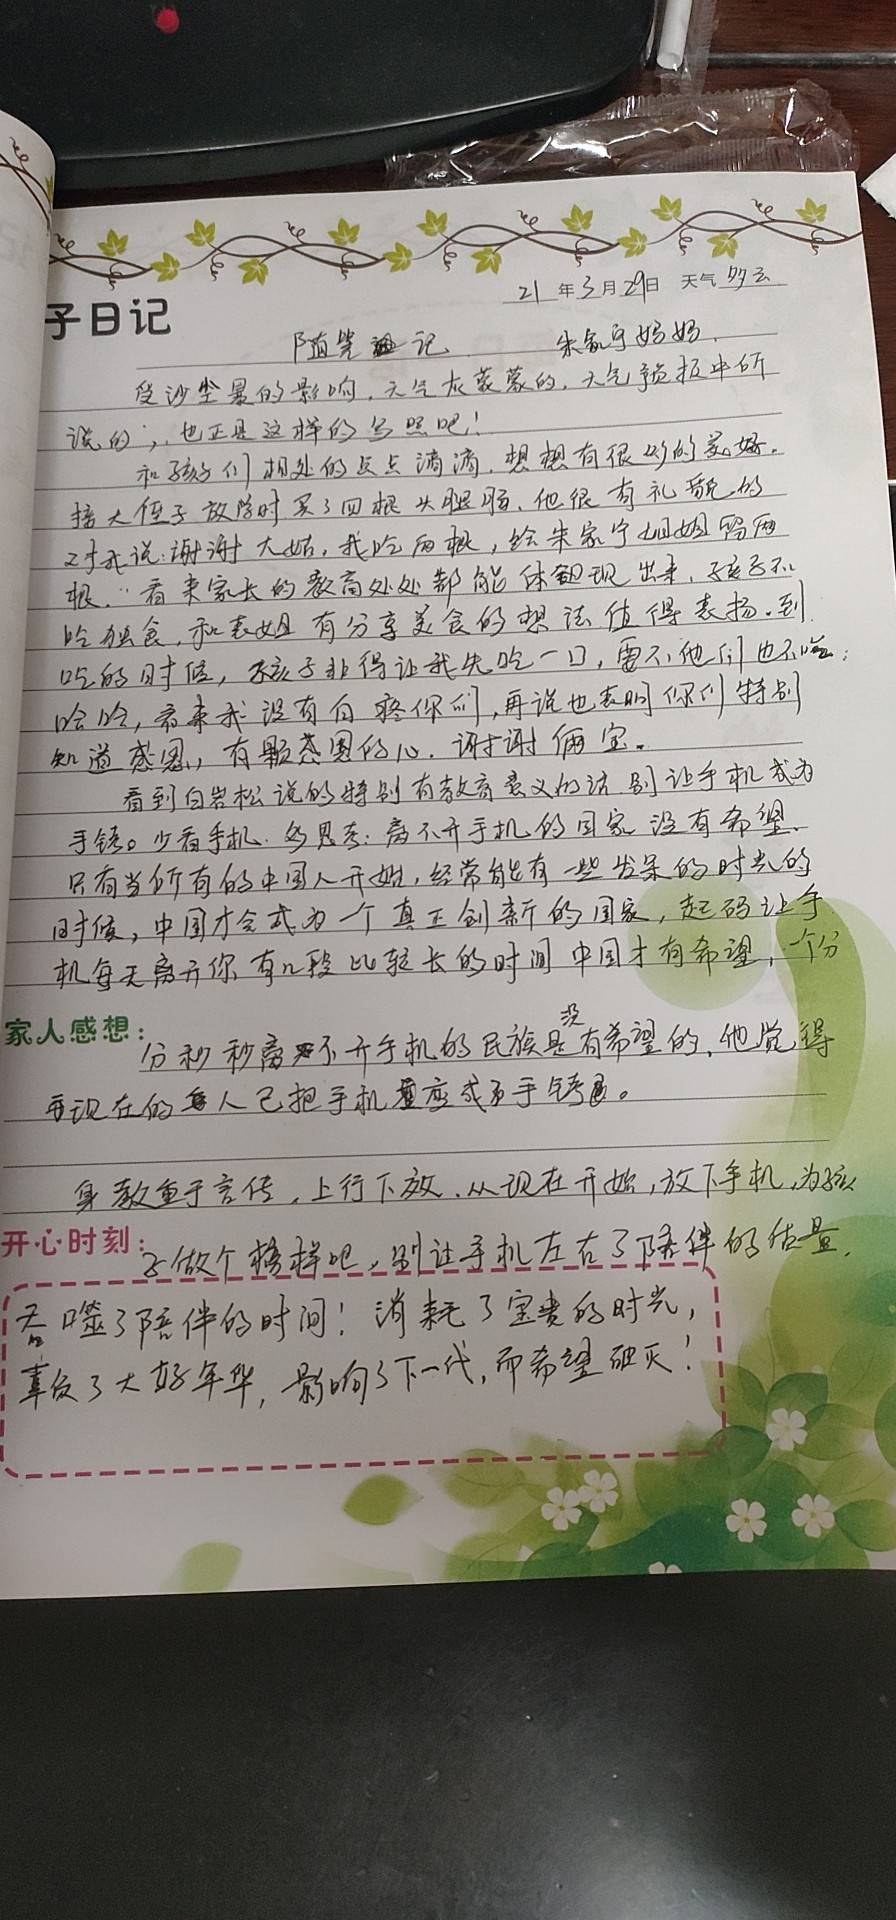 21年3月29日 天气 多云
子日记
随笔记 朱家宁妈妈.
受沙尘暴的影响,天气灰蒙蒙的,天气预报中所
说的,也正是这样的写照吧!
和孩子们相处的点点滴滴,想想有很多的美好。
接大侄子放学时买了四根火腿肠,他很有礼貌的
对我说:谢谢大姑,我吃两根,给朱家宁姐姐留两
根。"看来家长的教育处处都能体现出来,孩子不
吃独食,和表姐有分享美食的想法值得表扬。到
吃的时候,孩子非得让我先吃一口,要不他们也不吃;
哈哈,看来我没有白疼你们,再说也表明你们特别
知道感恩,有颗感恩的心.谢谢俩宝。
看到白岩松说的特别有教育意义的话别让手机成为
手铐。少看手机.多思考:离不开手机的国家没有希望、
只有当所有的中国人开始,经常能有一些发呆的时光的
时候,中国才会成为一个真正创新的国家,起码让手
机每天离开你有几段比较长的时间中国才有希望,一个分
家人感想:
分秒秒离不开手机的民族是没有希望的,他觉得
现在的人已把手机变成了手铐。
身教重于言传,上行下效.从现在开始,放下手机,为孩
开心时刻:
子做个榜样吧,别让手机左右了陪伴的质量,
吞噬了陪伴的时间!消耗了宝贵的时光,
辜负了大好年华,影响了下一代,而希望破灭!